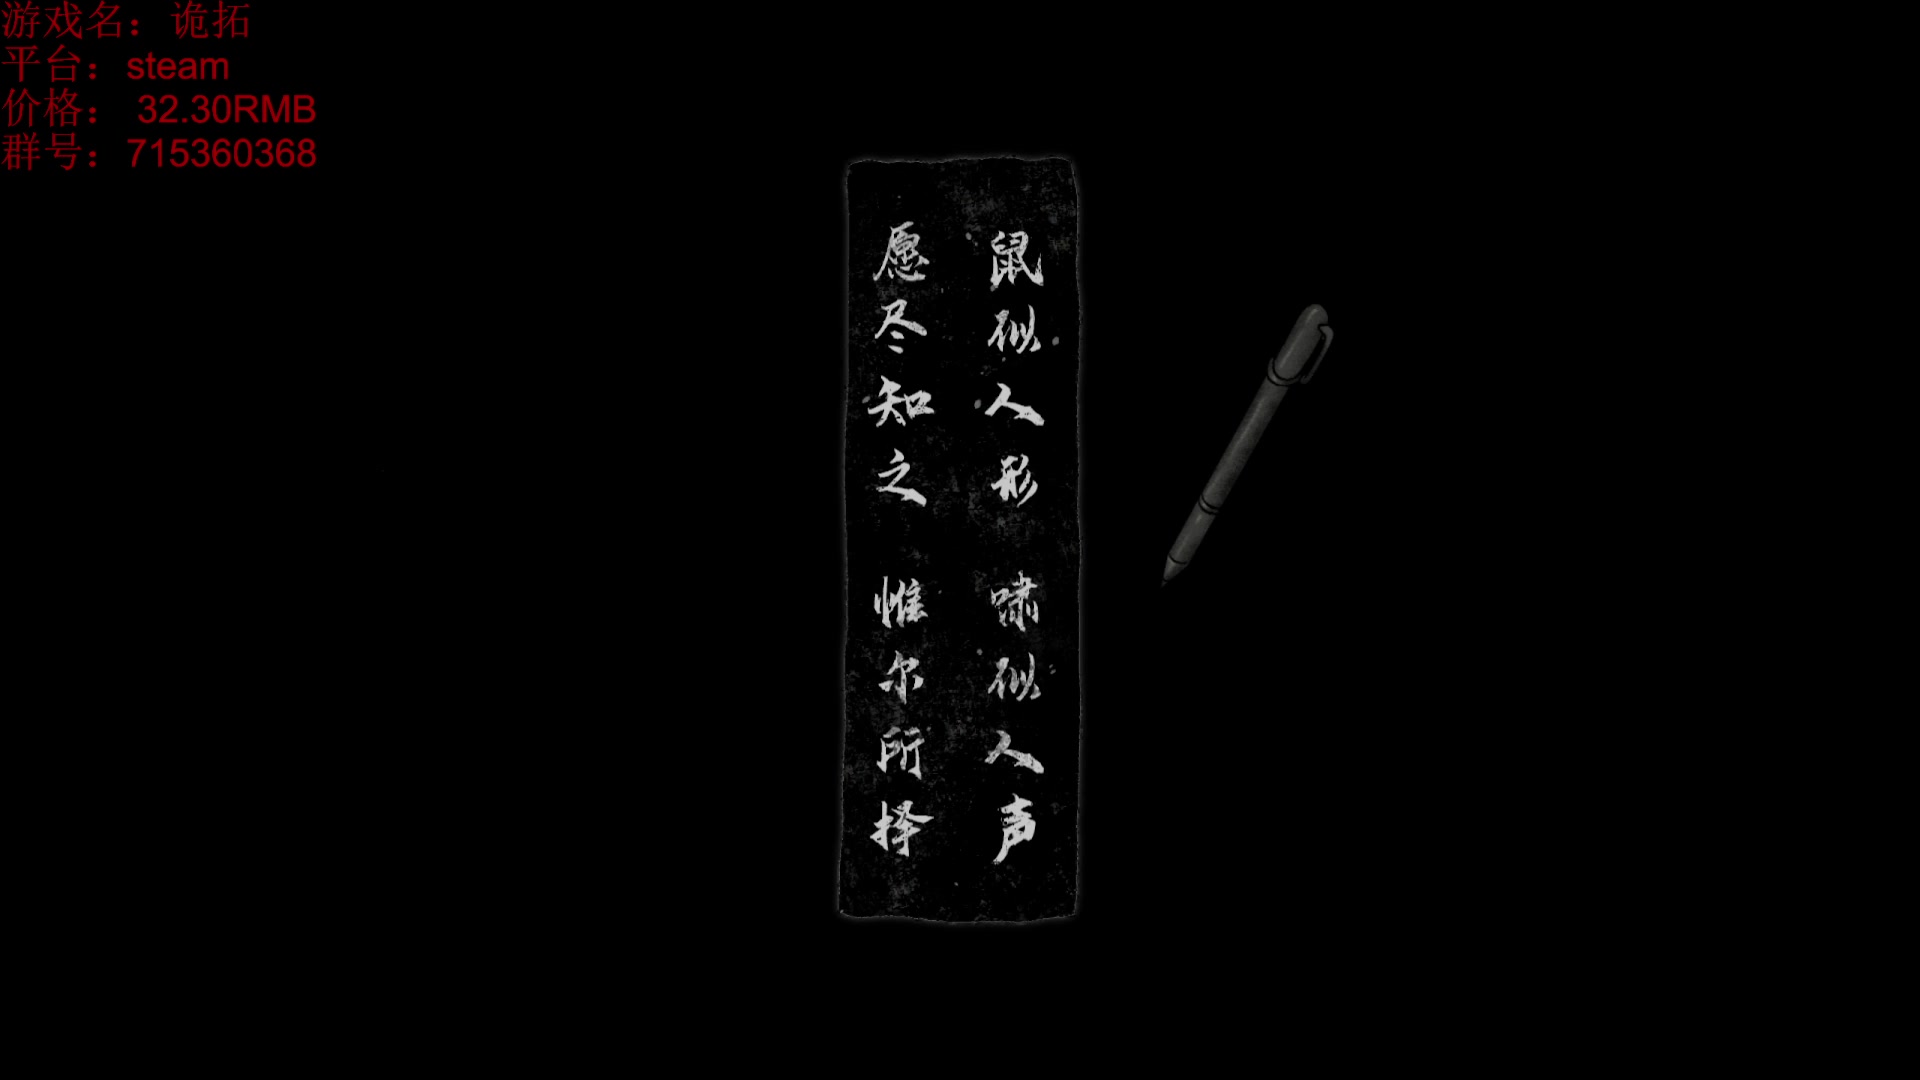 游戏名：诡拓
平台：steam
价格： 32.30RMB
群号：715360368
鼠似人形 啸似人声
愿尽知之 惟尔所择